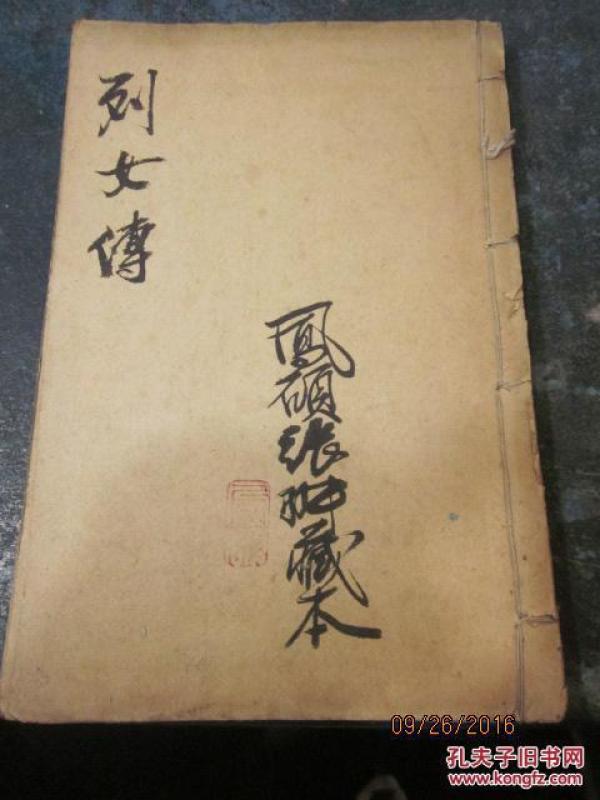 列女傳
鳳碩張翀藏本
09/26/2016
孔夫子旧书网
www.kongfz.com